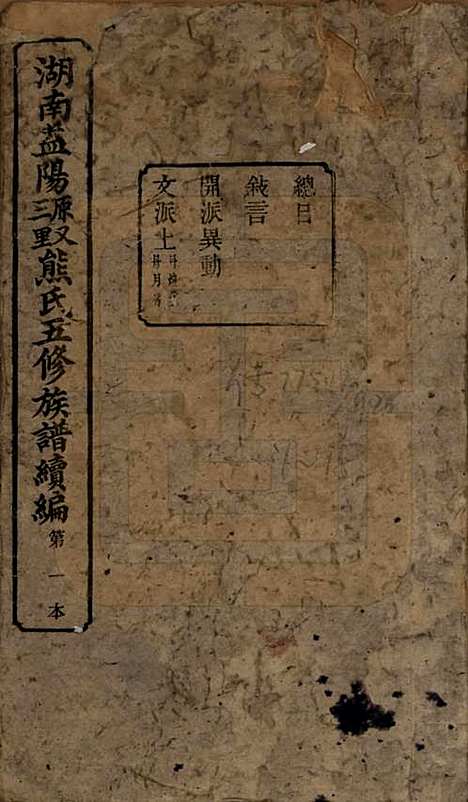 總目
敍言
開派異動
文派上
湖南益陽三里源又熊氏五修族譜續編 第一本